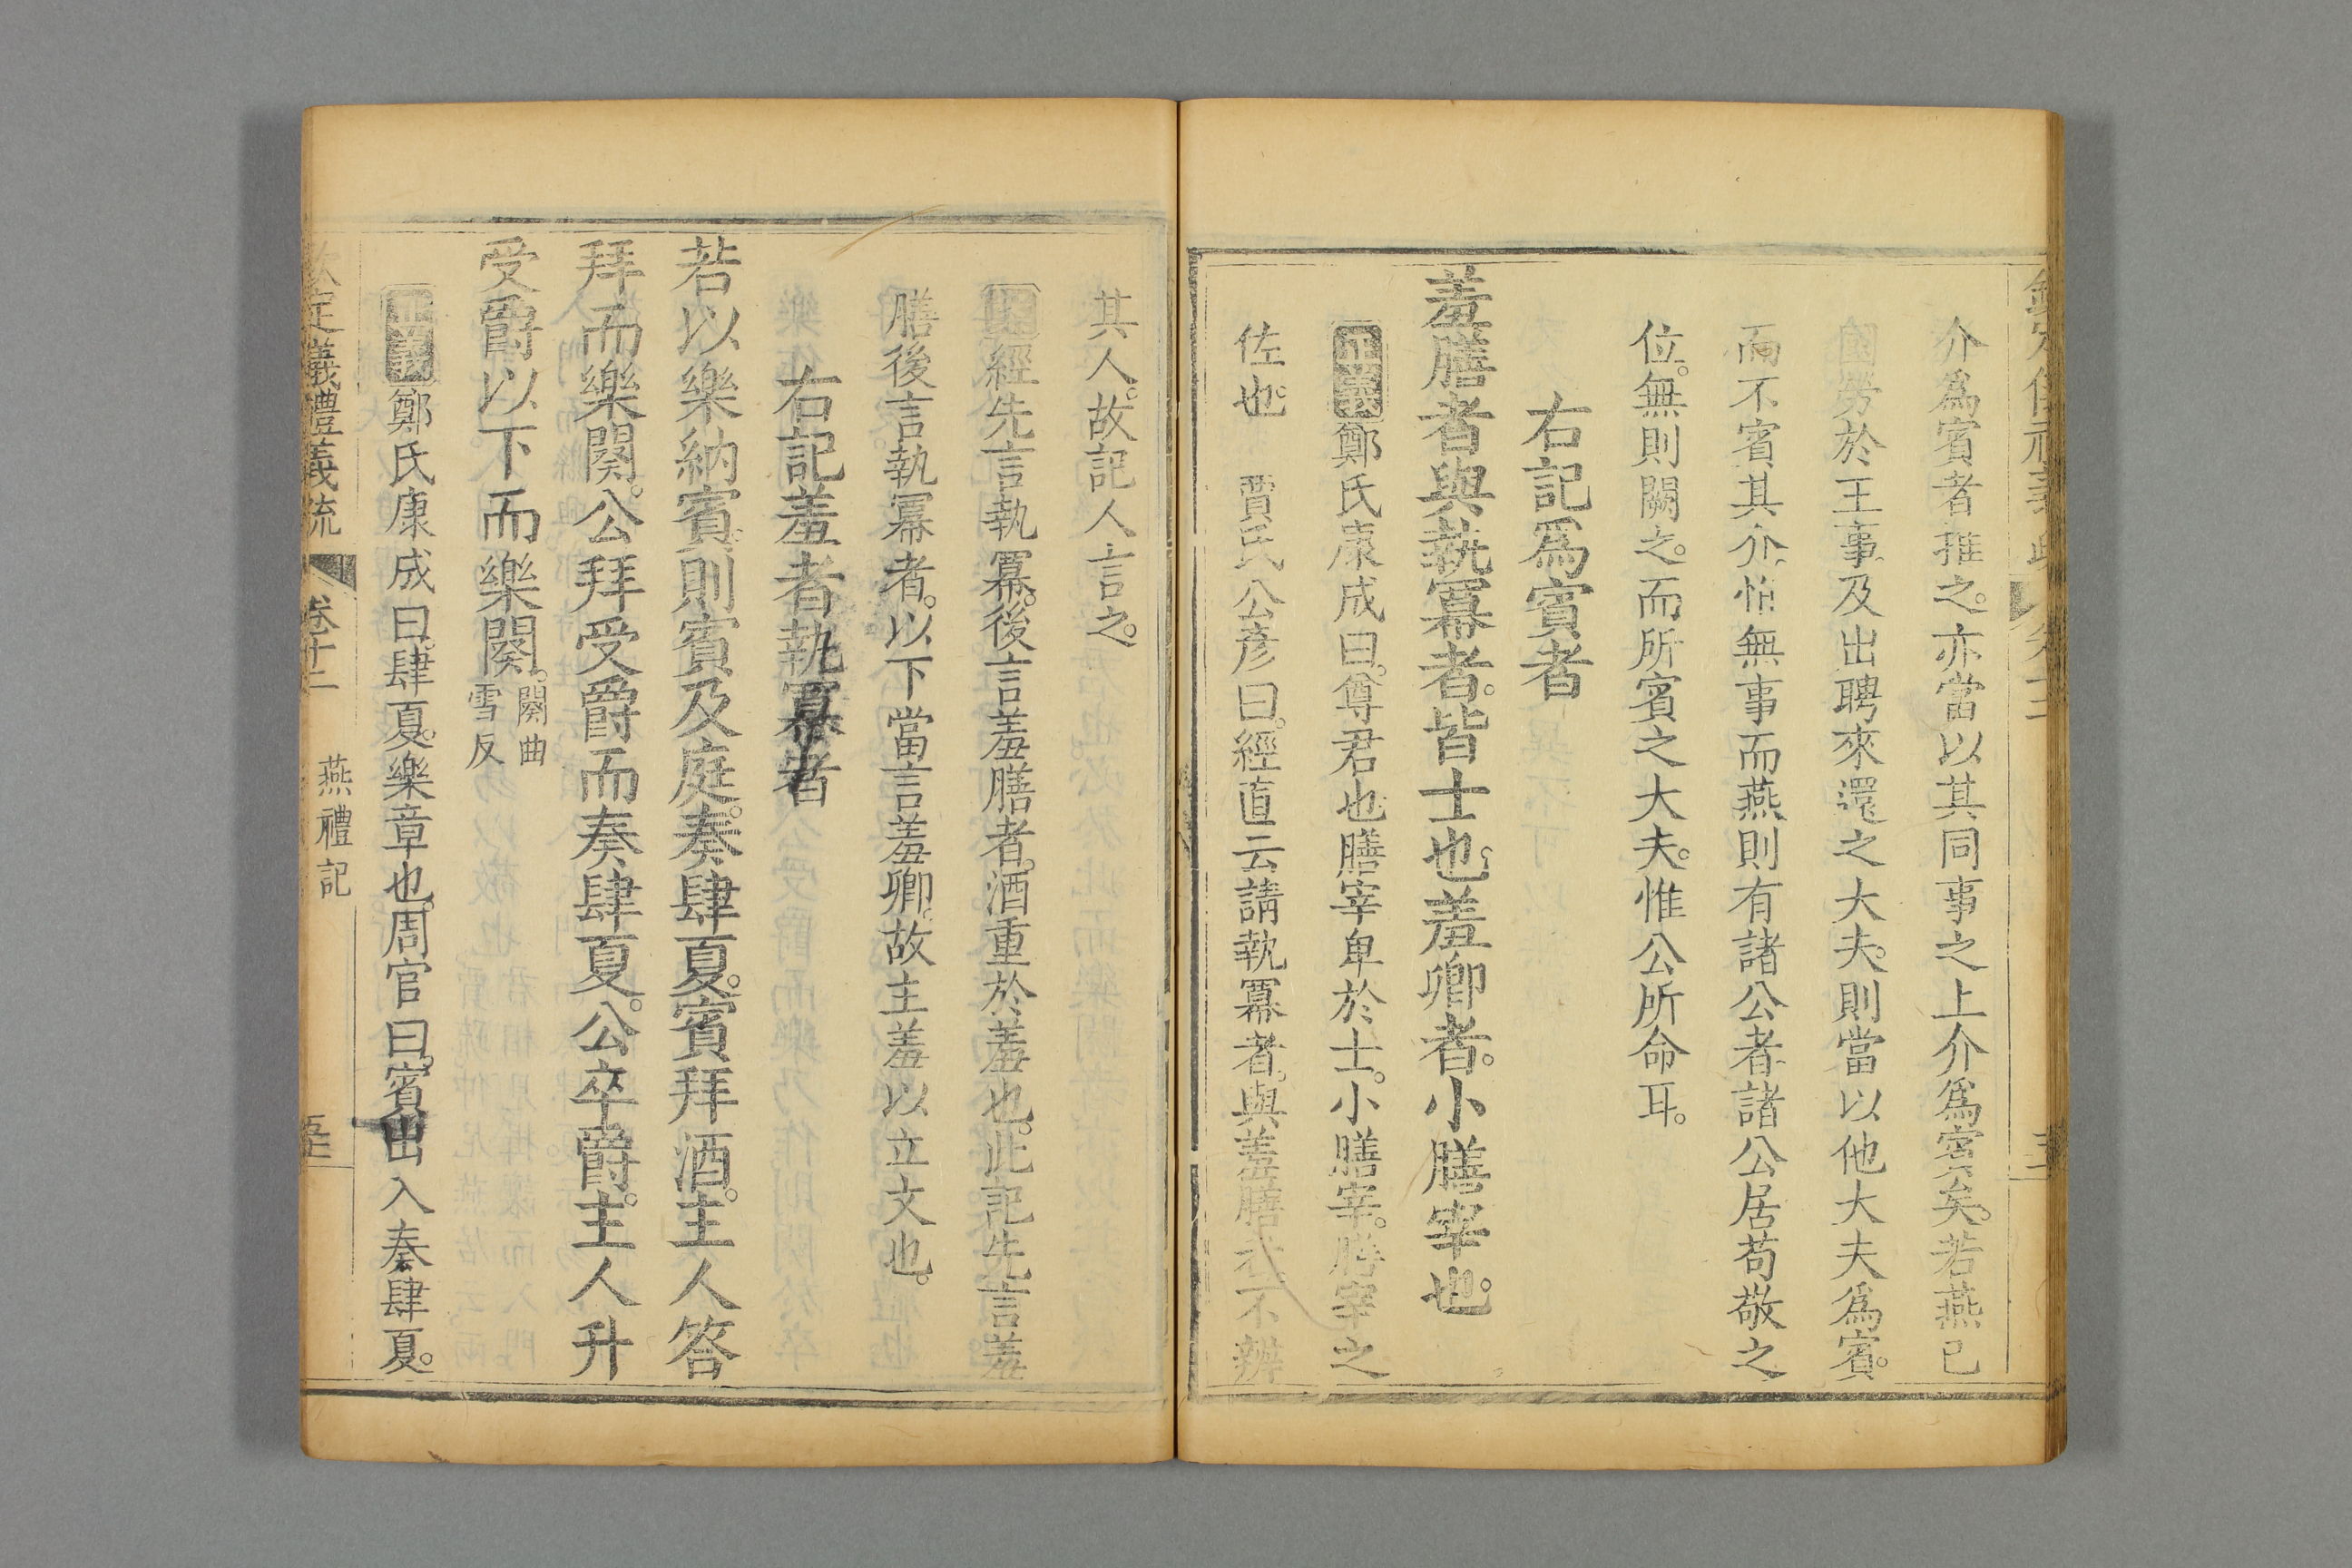 介爲賓者推之。亦當以其同事之上介爲賓矣。若燕已
國勞於王事。及出聘來還之大夫。則當以他大夫爲賓。
而不賓其介。恉無事而燕則有諸公者。諸公居苟敬之
位。無則闕之。而所賓之大夫。惟公所命耳。
右記爲賓者
羞膳者與執冪者。皆士也。羞卿者。小膳宰也。
正義鄭氏康成曰。尊君也。膳宰卑於士。小膳宰。膳宰之
佐也。 賈氏公彥曰。經直云請執冪者。與羞膳者。不辨
其人。故記人言之。
經先言執冪。後言羞膳者。酒重於羞也。此記先言羞
膳後言執冪者。以下當言羞卿。故主羞以立文也。
右記羞者執冪者
若以樂納賓。則賓及庭。奏肆夏。賓拜酒。主人答
拜而樂闋。公拜受爵而奏肆夏。公卒爵。主人升
受爵以下而樂闋。闋曲雪反
正義鄭氏康成曰。肆夏。樂章也。周官曰。賓出入奏肆夏。
欽定儀禮義疏 卷十二 燕禮記